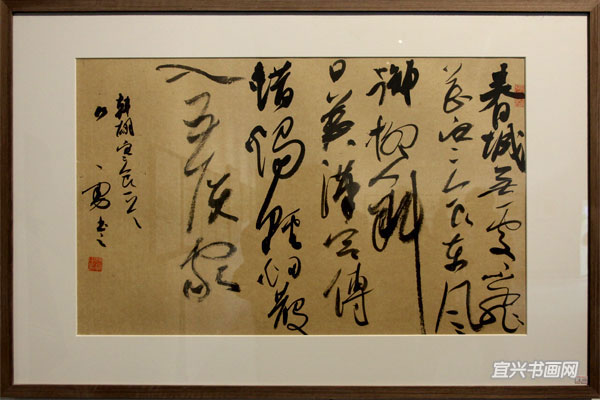 春城无處不飛
花寒食东风
御柳斜
日暮漢宫傳
蜡燭輕烟散
入五侯家
韩翃寒食一首
勇书
宜兴书画网